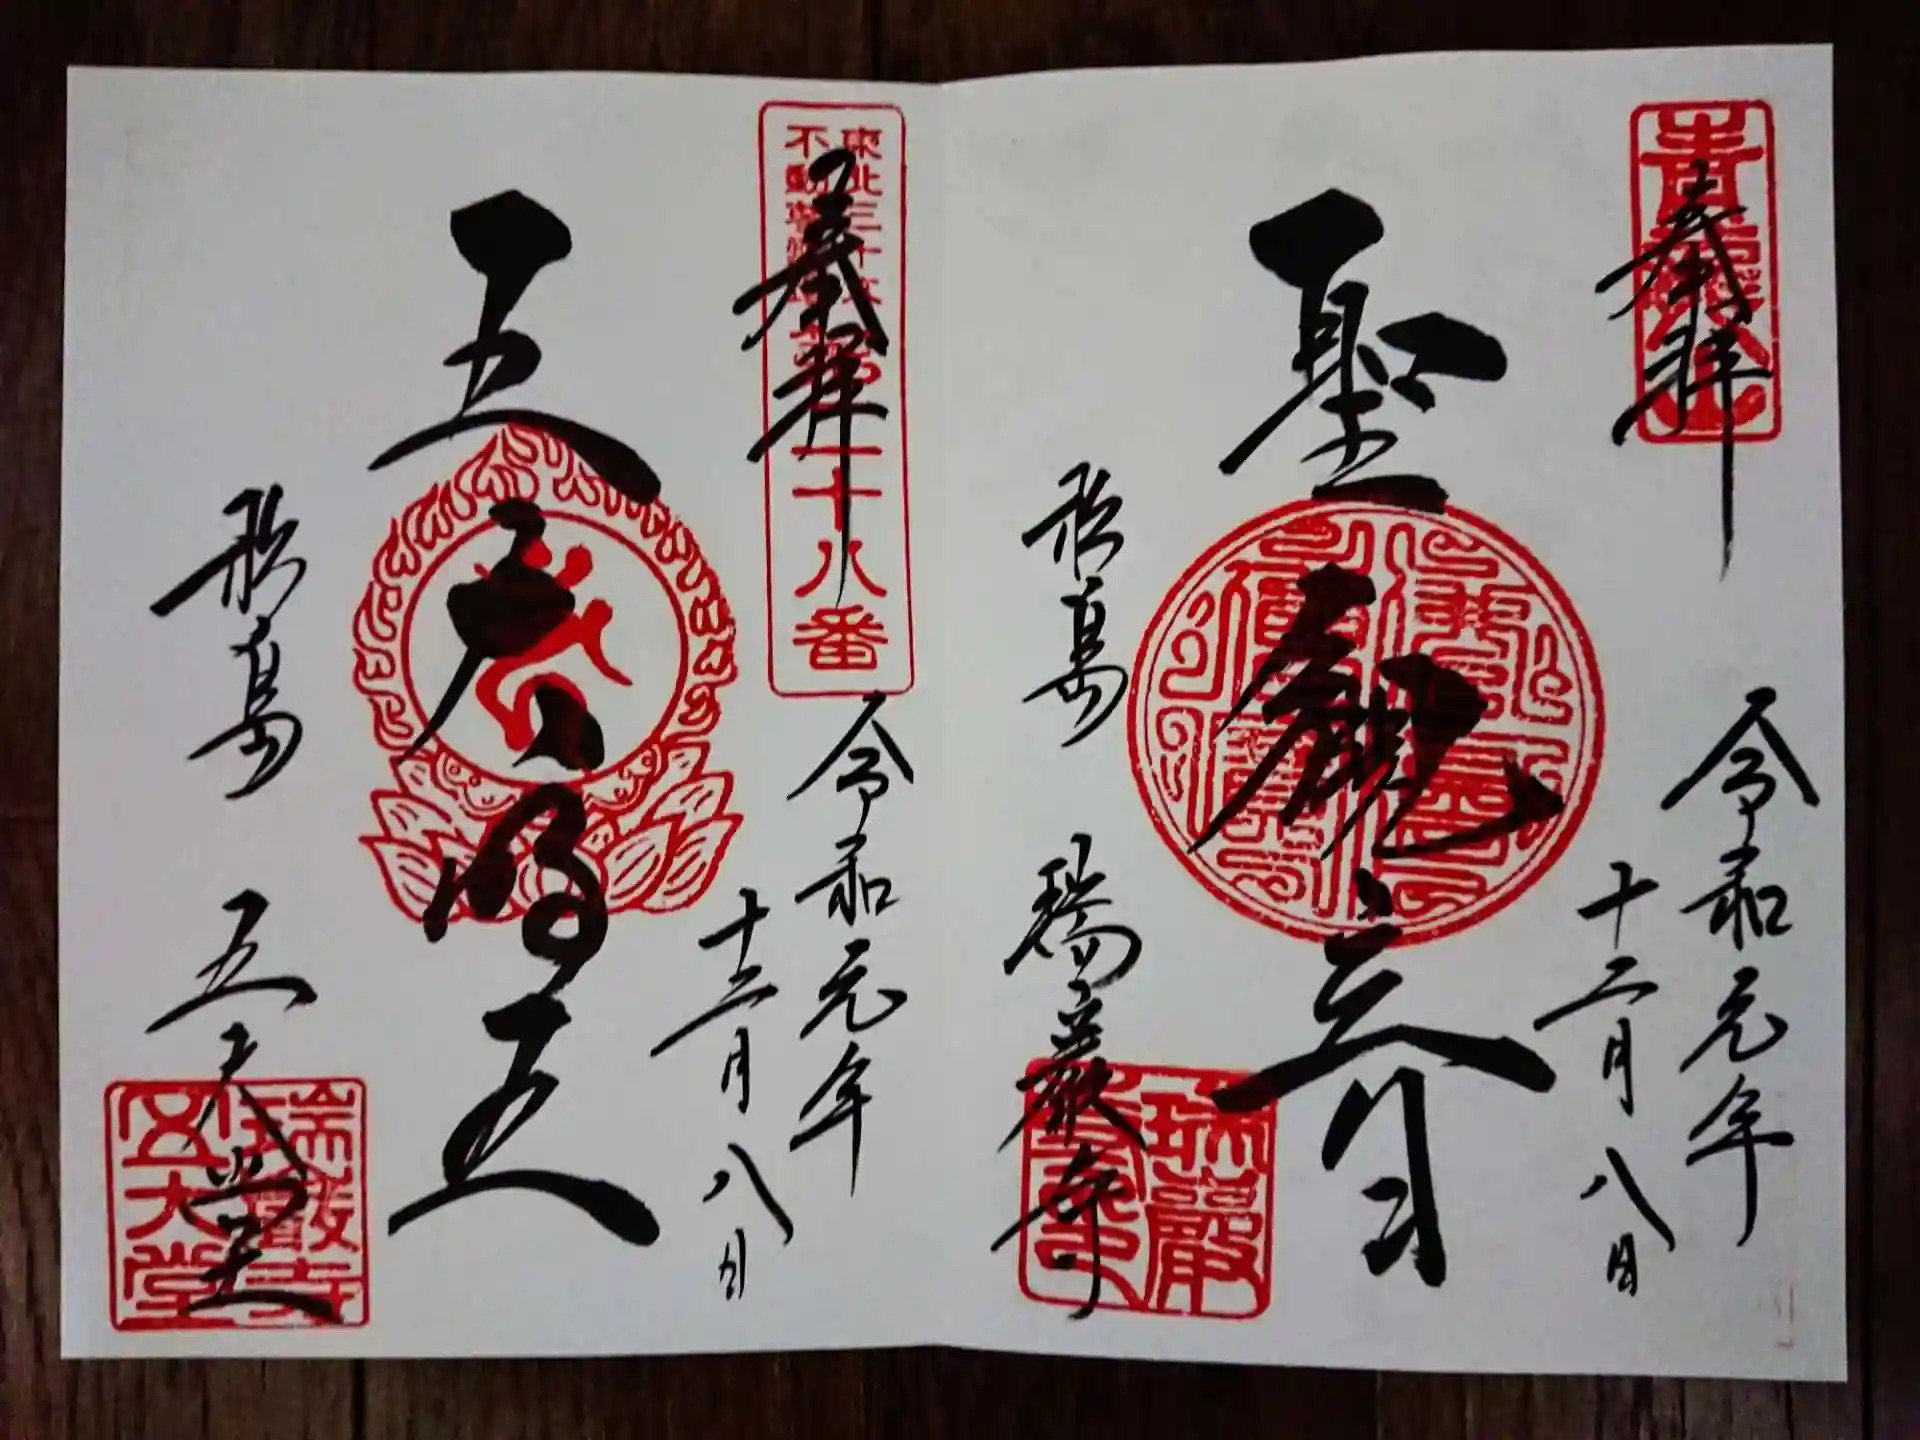 奉拝
令和元年
十二月八日
聖観世音
松島
瑞巌寺
瑞巌
奉拝
東北三十六
不動尊霊場
第二十八番
令和元年
十二月八日
五大明王
松島
五大堂
瑞巌寺
五大堂